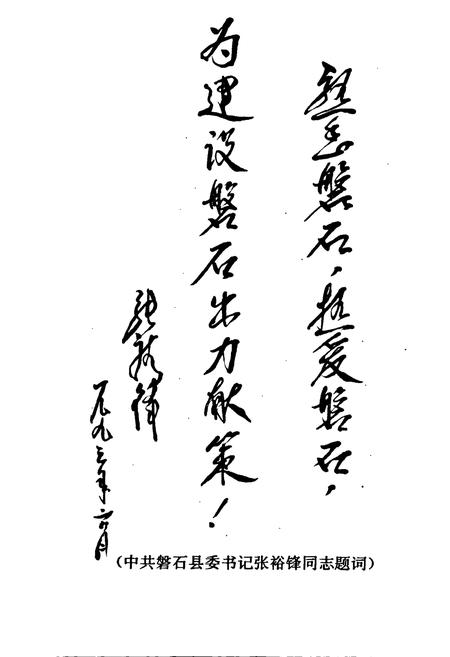 熟悉磐石，热爱磐石，
为建设磐石出力献策！
张裕锋
一九九三年二月
（中共磐石县委书记张裕锋同志题词）